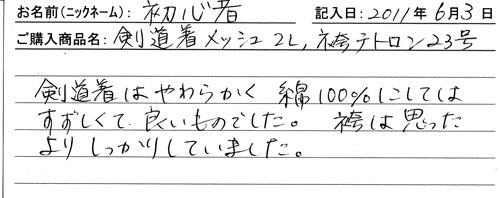 お名前(ニックネーム): 初心者 記入日: 2011年 6月 3日
ご購入商品名: 剣道着メッシュ 2L, 袴テトロン23号
剣道着はやわらかく 綿100%にしては
すずしくて良いものでした。 袴は思った
よりしっかりしていました。